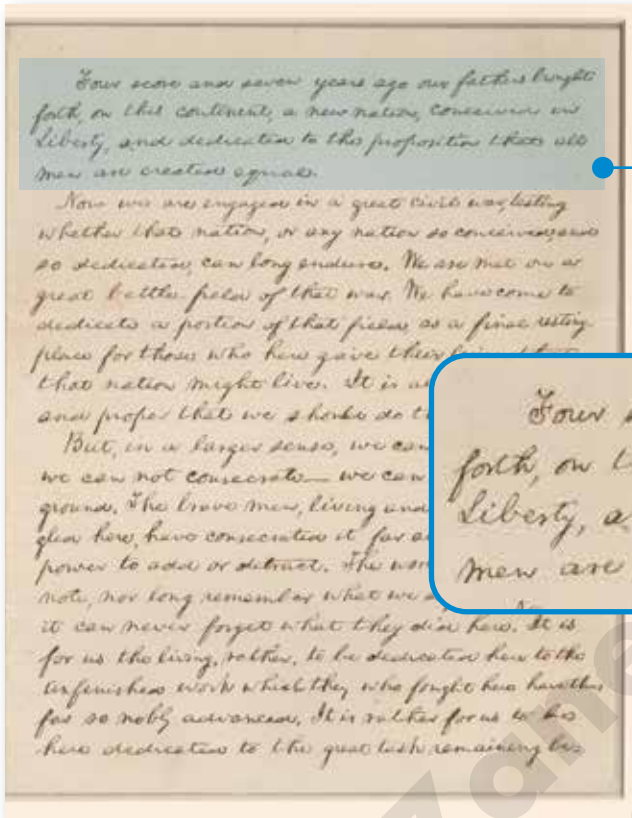 Four score and seven years ago our fathers brought
forth, on this continent, a new nation, conceived in
Liberty, and dedicated to the proposition that all
men are created equal.
Now we are engaged in a great civil war, testing
whether that nation, or any nation so conceived, and
so dedicated, can long endure. We are met on a
great battle field of that war. We have come to
dedicate a portion of that field, as a final resting
place for those who here gave their
that nation might live. It is
and proper that we should do
But, in a larger sense, we can
we can not consecrate— we can
ground. The brave men, living and
here, have consecrated it far
power to add or detract. The
note, nor long remember what we
it can never forget what they did here. It is
for us the living, rather, to be dedicated here to the
unfinished work which they who fought here have thus
far so nobly advanced. It is rather for us to be
here dedicated to the great task remaining be
Four
forth, on
Liberty, a
men are
Zane